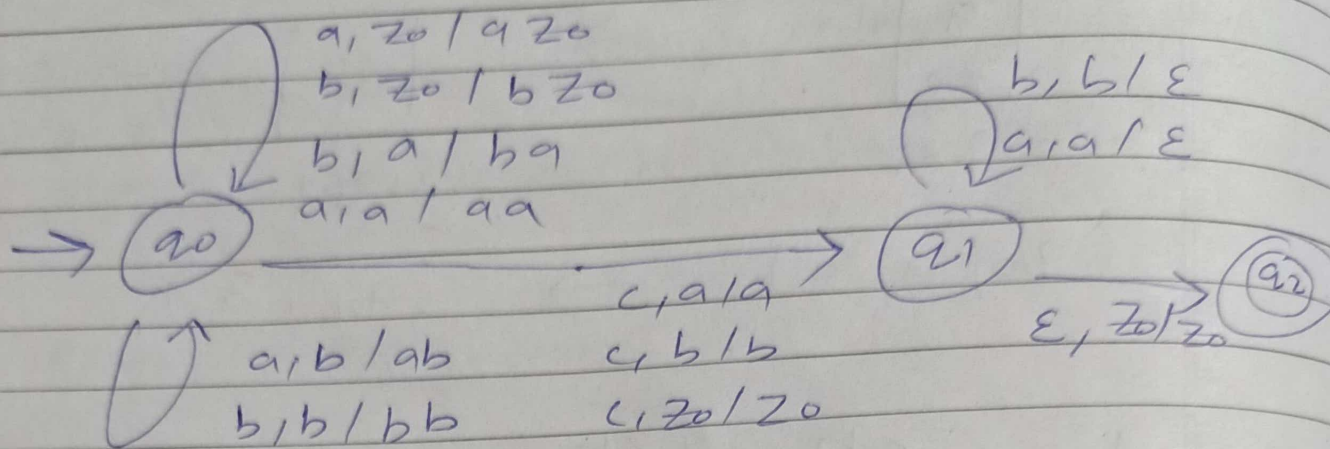 a, z0 / a z0
b, z0 / b z0
b, a / ba
a, a / aa
b, b / ε
a, a / ε
q0
q1
q2
c, a / a
c, b / b
c, z0 / z0
ε, z0 / z0
a, b / ab
b, b / bb